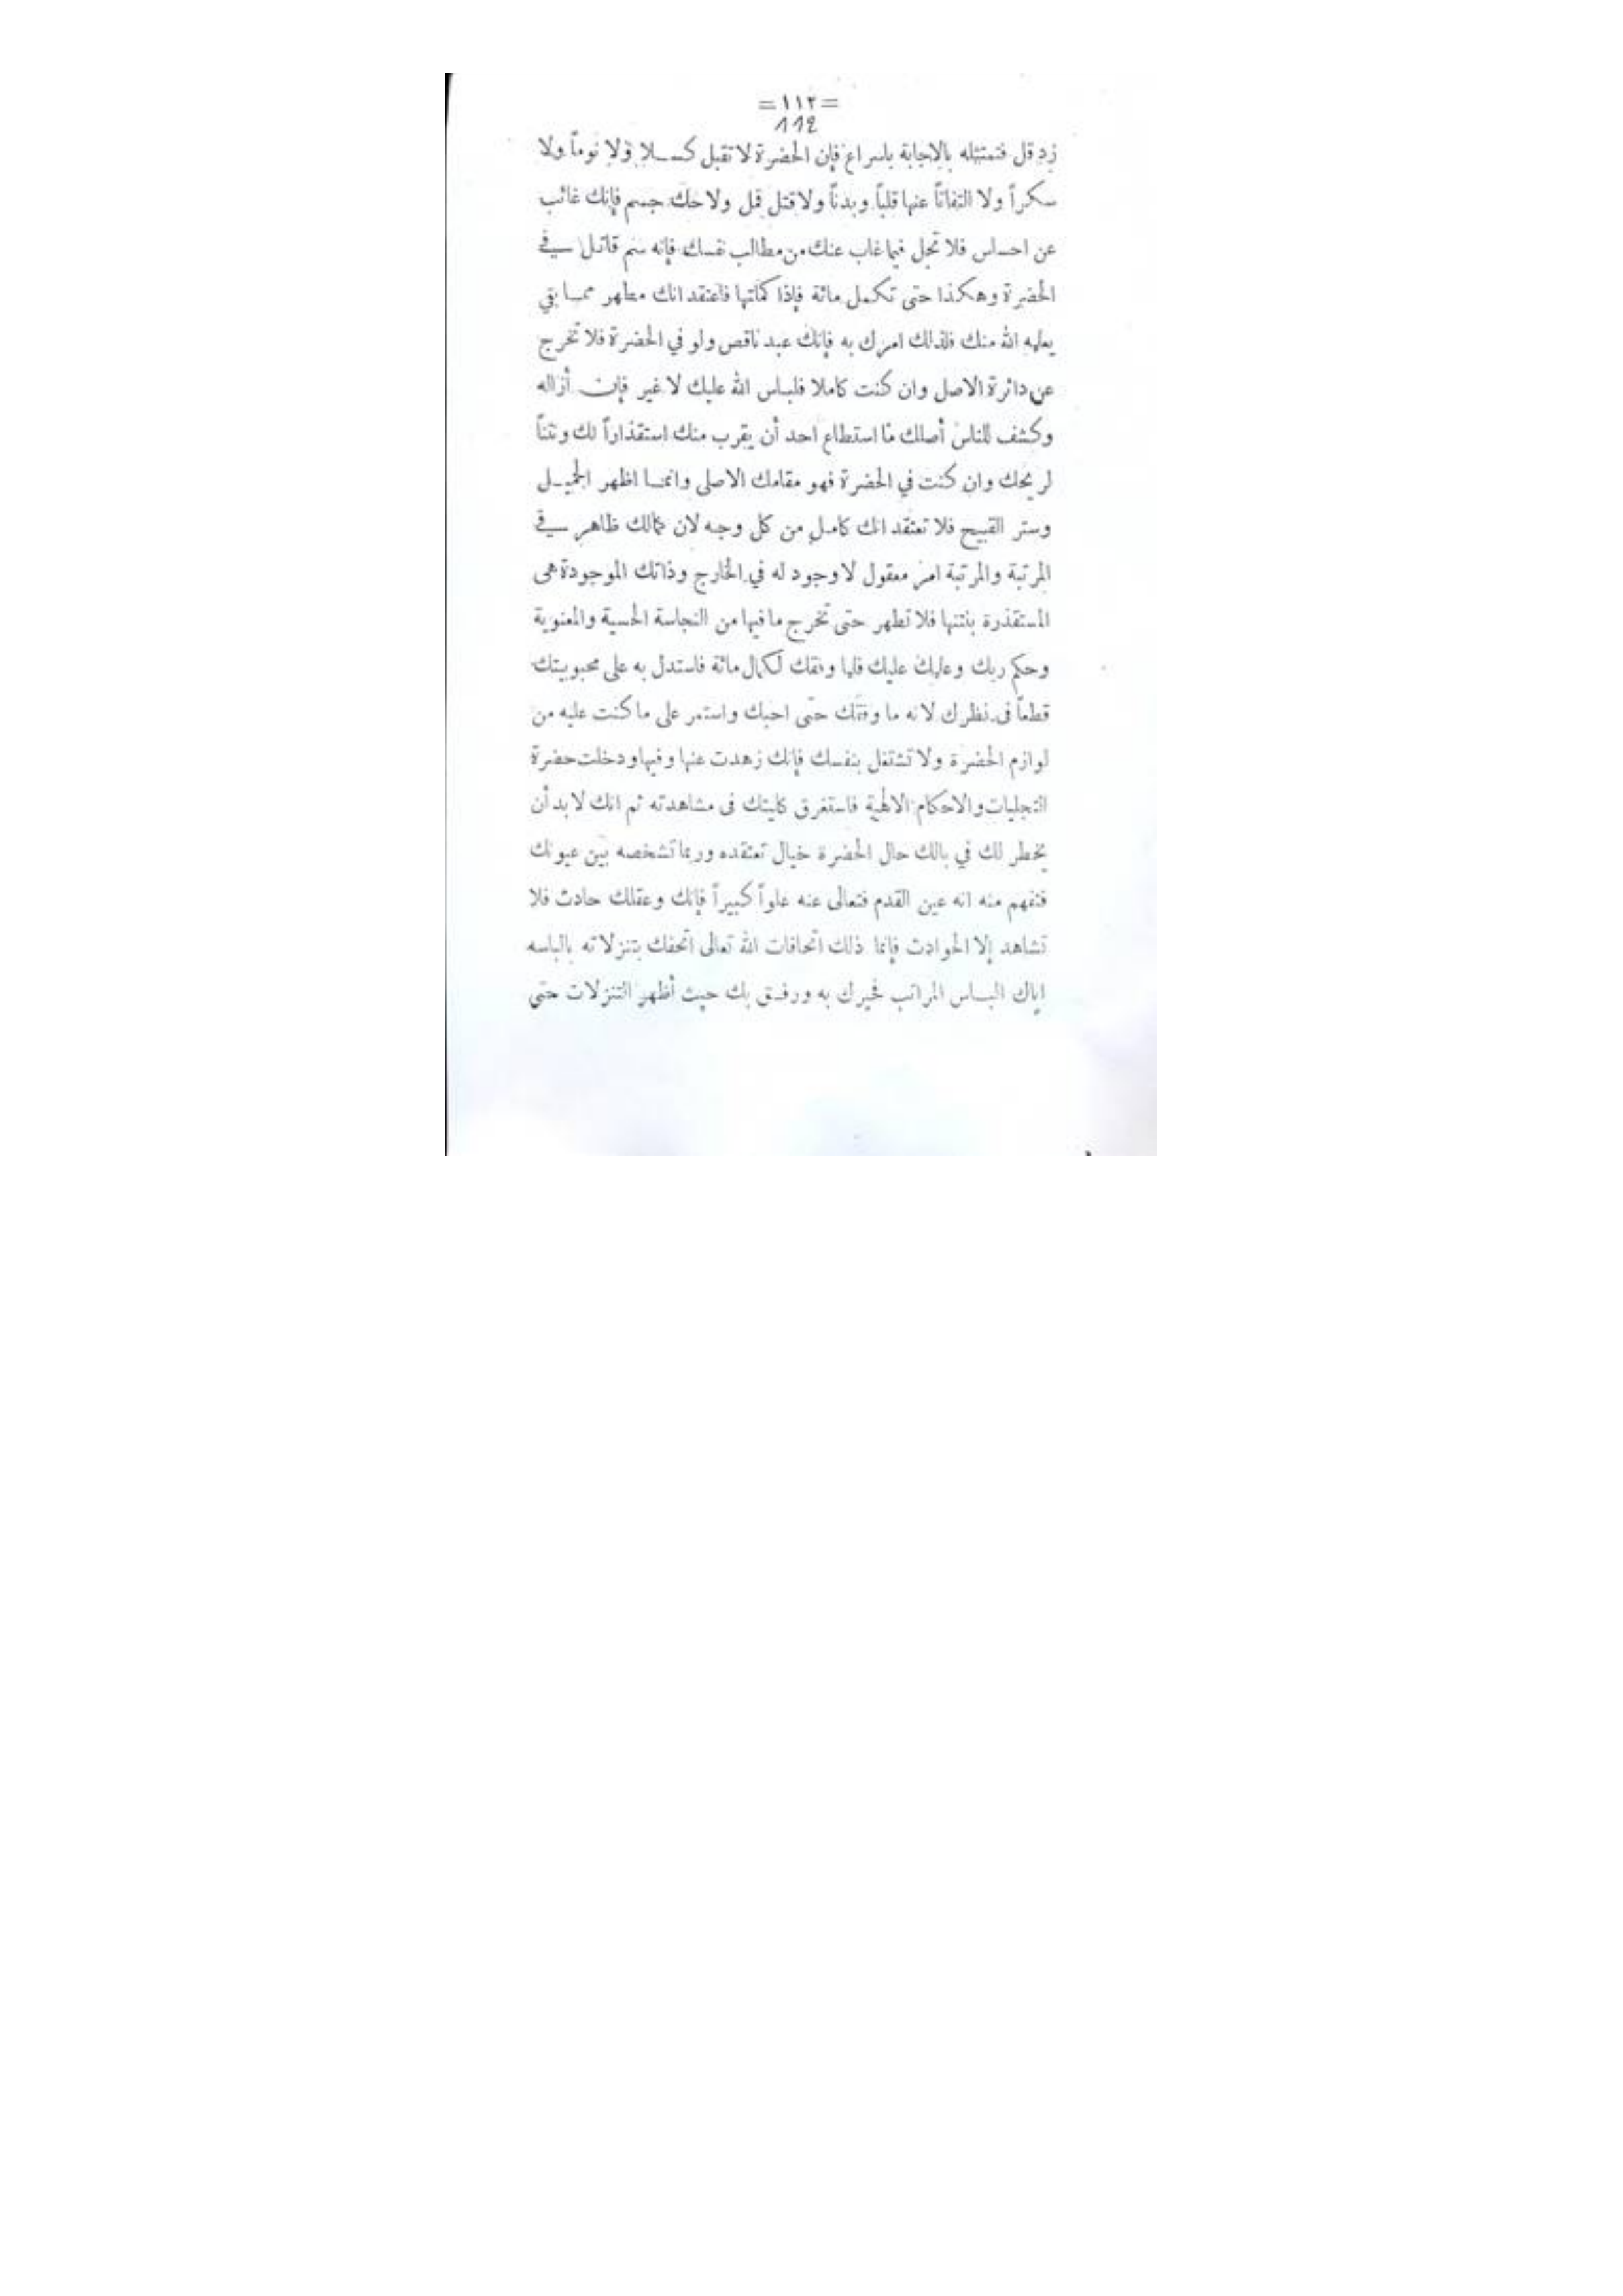 =١١٢=
112
زد قل فتمتثله بالاجابة باسراع فإن الحضرة لا تقبل كسـلا ولا نوماً ولا
سكراً ولا التفاتاً عنها قلباً وبدناً ولا قتل قمل ولا حك جسم فإنك غائب
عن احساس فلا تجل فيما غاب عنك من مطالب نفسك فإنه سم قاتل في
الحضرة وهكذا حتى تكمل مائة فإذا كملتها فاعتقد انك مطهر ممـا بقي
يعلمه الله منك فلذلك امرك به فإنك عبد ناقص ولو في الحضرة فلا تخرج
عن دائرة الاصل وان كنت كاملا فلباس الله عليك لا غير فإن أزاله
وكشف للناس أصلك ما استطاع احد أن يقرب منك استقذاراً لك ونتناً
لريحك وان كنت في الحضرة فهو مقامك الاصلى وانمـا اظهر الجميـل
وستر القبيح فلا تعتقد انك كامل من كل وجه لان كمالك ظاهر في
المرتبة والمرتبة امر معقول لا وجود له في الخارج وذاتك الموجودة هى
المستقذرة بنتنها فلا تطهر حتى تخرج ما فيها من النجاسة الحسية والمعنوية
وحكم ربك وعليك عليك فلما وفقك لكمال مائة فاستدل به على محبوبيتك
قطعاً فى نظرك لانه ما وفقك حتى احبك واستمر على ما كنت عليه من
لوازم الحضرة ولا تشتغل بنفسك فإنك زهدت عنها وفيها ودخلت حضرة
التجليات والاحكام الالهية فاستغرق كليتك فى مشاهدته ثم انك لابد أن
يخطر لك في بالك حال الحضرة خيال تعتقده وربما تشخصه بين عيونك
فتفهم منه انه عين القدم فتعالى عنه علواً كبيراً فإنك وعقلك حادث فلا
تشاهد إلا الحوادث فإنما ذلك اتحافات الله تعالى اتحفك بتنزلاته بالباسه
إياك البـاس المراتب فحيرك به ورفـق بك حيث أظهر التنزلات حتى